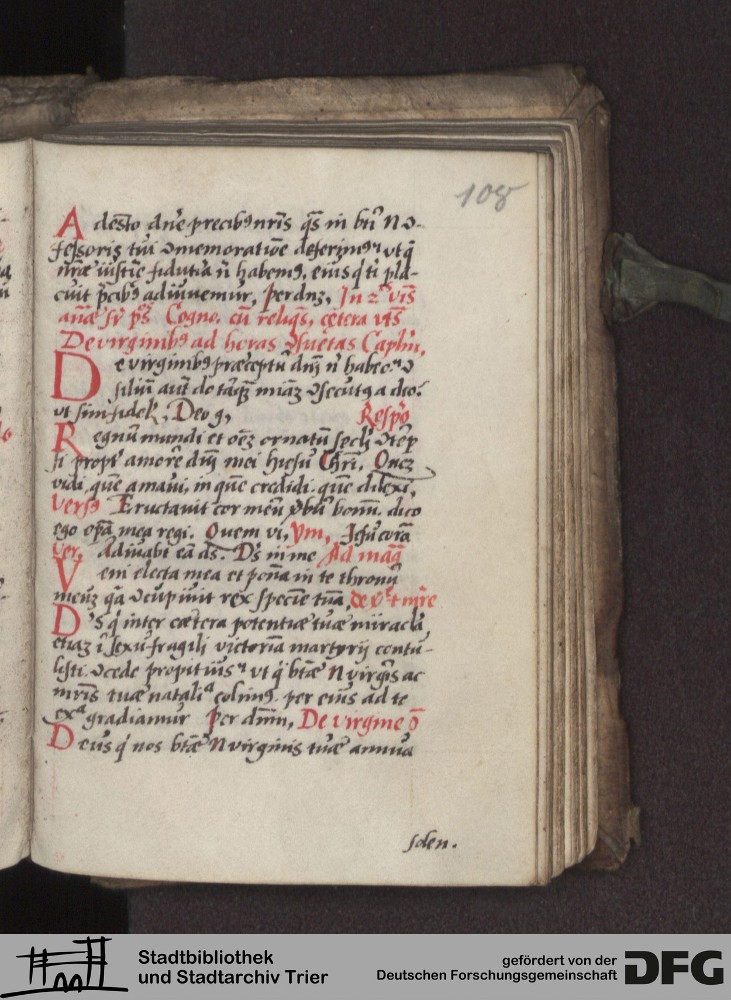 108
Adesto dn̄e precibꝰ nr̄is qs̄ in btī N ↄ-
fessoris tui ↄmemoratiōe deferimꝰ vt q̄
nr̄æ iustitiē fidutiā n̄ habemꝰ, eiꝰ q ti pla-
cuit p̄cibꝰ adiuuemur, per dn̄z, In 2 vīs
añæ sr̄ ps̄ Cogno. cū reliqs̄, cetera vts̄
De virginibꝰ ad horas ↄsuetas Caplm̄,
De virginibꝰ præceptū dn̄i n̄ habeo. ↄ
siliū aut̄ do tāq̄ȝ miāȝ ↄsecutꝰ a deo
vt sim fidel, Deo g, Respō
Regnū mundi et oēȝ ornatū secli ↄtēp
si propt amorē dn̄i mei hiesu Chrī, Quez
vidi, quē amavi, in quē credidi quē dilexi,
Versꝰ Eructauit cor meū vbū bonū. dico
ego opa mea regi. Quem vi, Vm,
Ver, Adiuabi eā ds. Ds̄ in me Ad mag
Veni electa mea et ponā in te thronū
meuȝ qa ↄcupiuit rex speciē tuā, de v et mr̄e
Ds̄ q inter cætera potentiæ tuæ miracla
etiaȝ ī sexu fragili victoriā martyrij contu-
listi ↄcede propitius vt q btæ N virgis ac
mr̄is tuæ natali colimꝰ per eius ad te
exa gradiamur Per dn̄m, De virgine ō
Deus q nos btæ N virginis tuæ annua
Stadtbibliothek
und Stadtarchiv Trier
gefördert von der
Deutschen Forschungsgemeinschaft
DFG